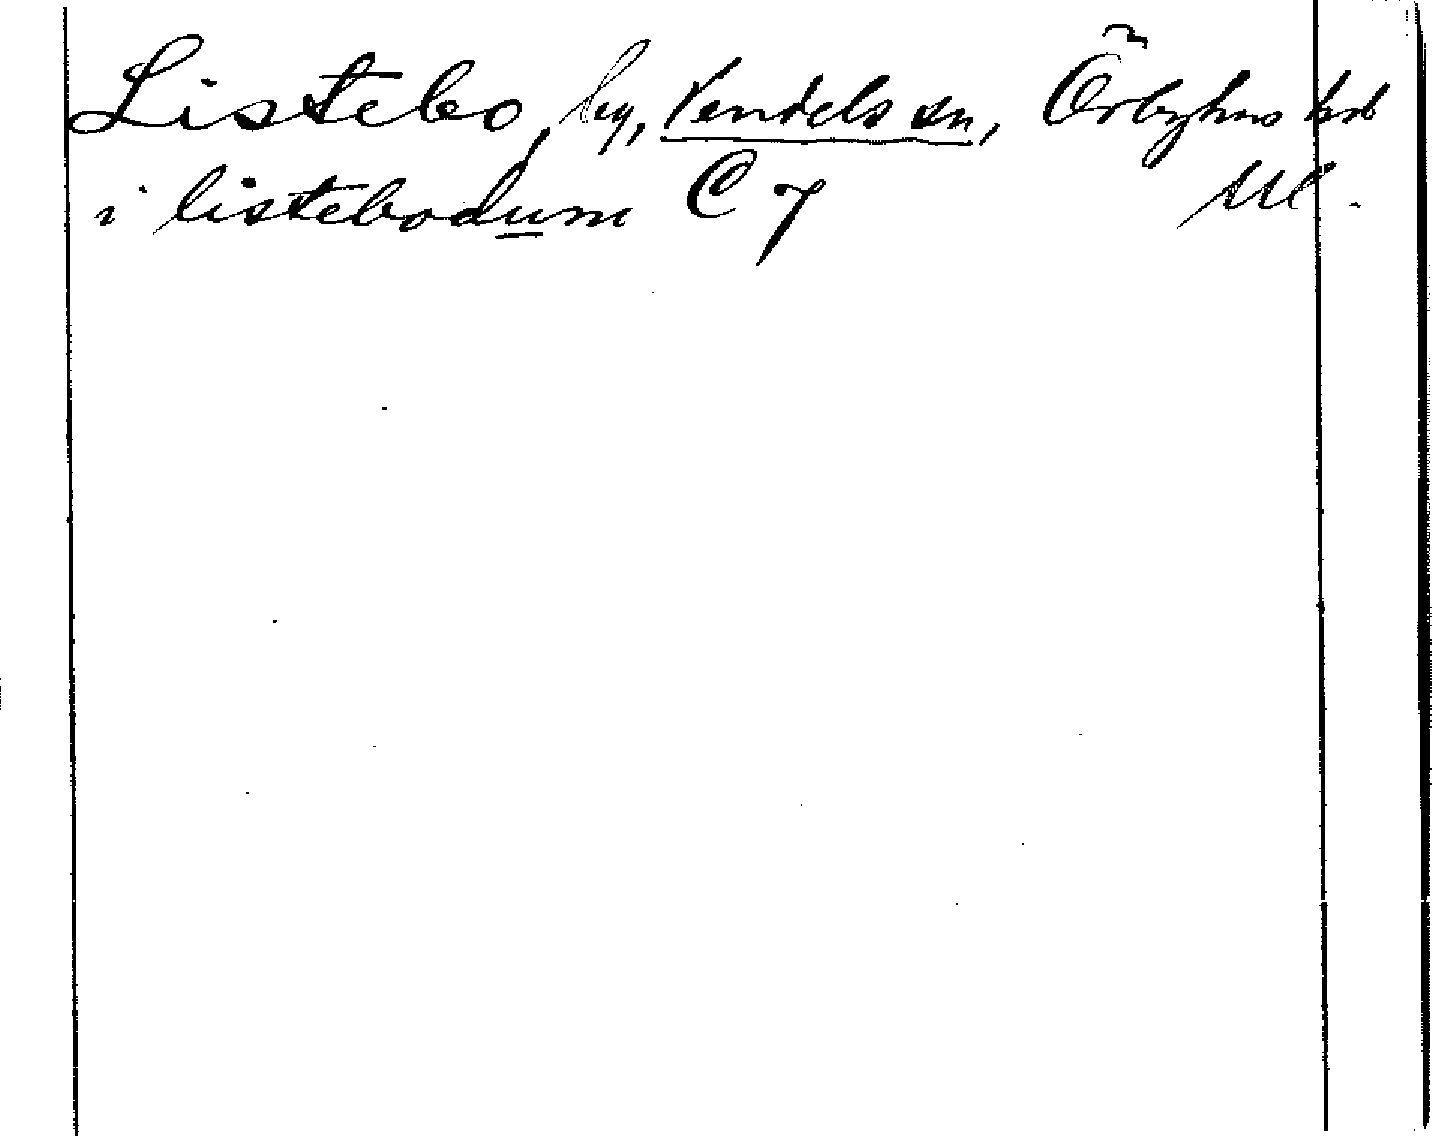 Listebo, by, Vendels sn, Örbyhus hd
i listebodum C 7 Ul.